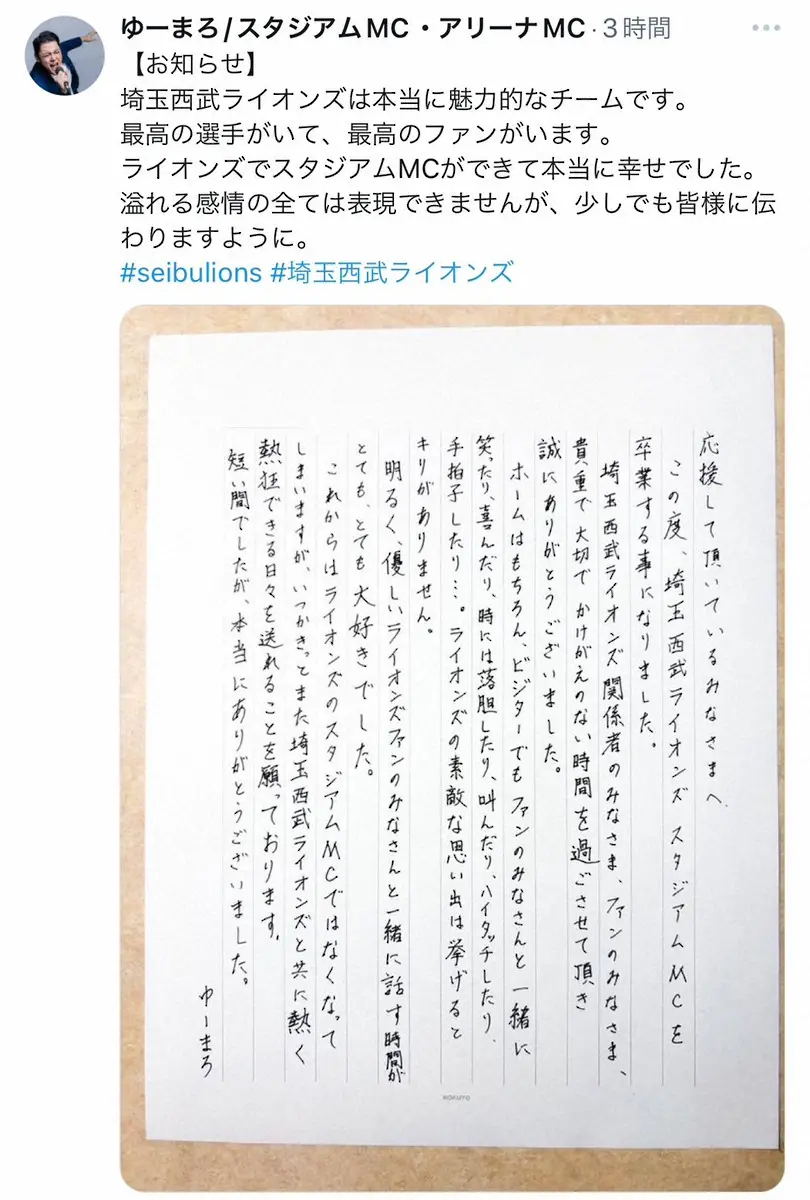 ゆーまろ/スタジアムMC・アリーナMC · 3時間
【お知らせ】
埼玉西武ライオンズは本当に魅力的なチームです。
最高の選手がいて、最高のファンがいます。
ライオンズでスタジアムMCができて本当に幸せでした。
溢れる感情の全ては表現できませんが、少しでも皆様に伝
わりますように。
#seibulions #埼玉西武ライオンズ
応援して頂いているみなさまへ
この度、埼玉西武ライオンズ スタジアムMCを
卒業する事になりました。
埼玉西武ライオンズ関係者のみなさま、ファンのみなさま、
貴重で大切でかけがえのない時間を過ごさせて頂き
誠にありがとうございました。
ホームはもちろん、ビジターでもファンのみなさんと一緒に
笑ったり、喜んだり、時には落胆したり、叫んだり、ハイタッチしたり、
手拍子したり…。ライオンズの素敵な思い出は挙げると
キリがありません。
明るく、優しいライオンズファンのみなさんと一緒に話す時間が
とても、とても大好きでした。
これからはライオンズのスタジアムMCではなくなって
しまいますが、いつかきっとまた埼玉西武ライオンズと共に熱く
熱狂できる日々を送れることを願っております。
短い間でしたが、本当にありがとうございました。
ゆーまろ
KOKUYO